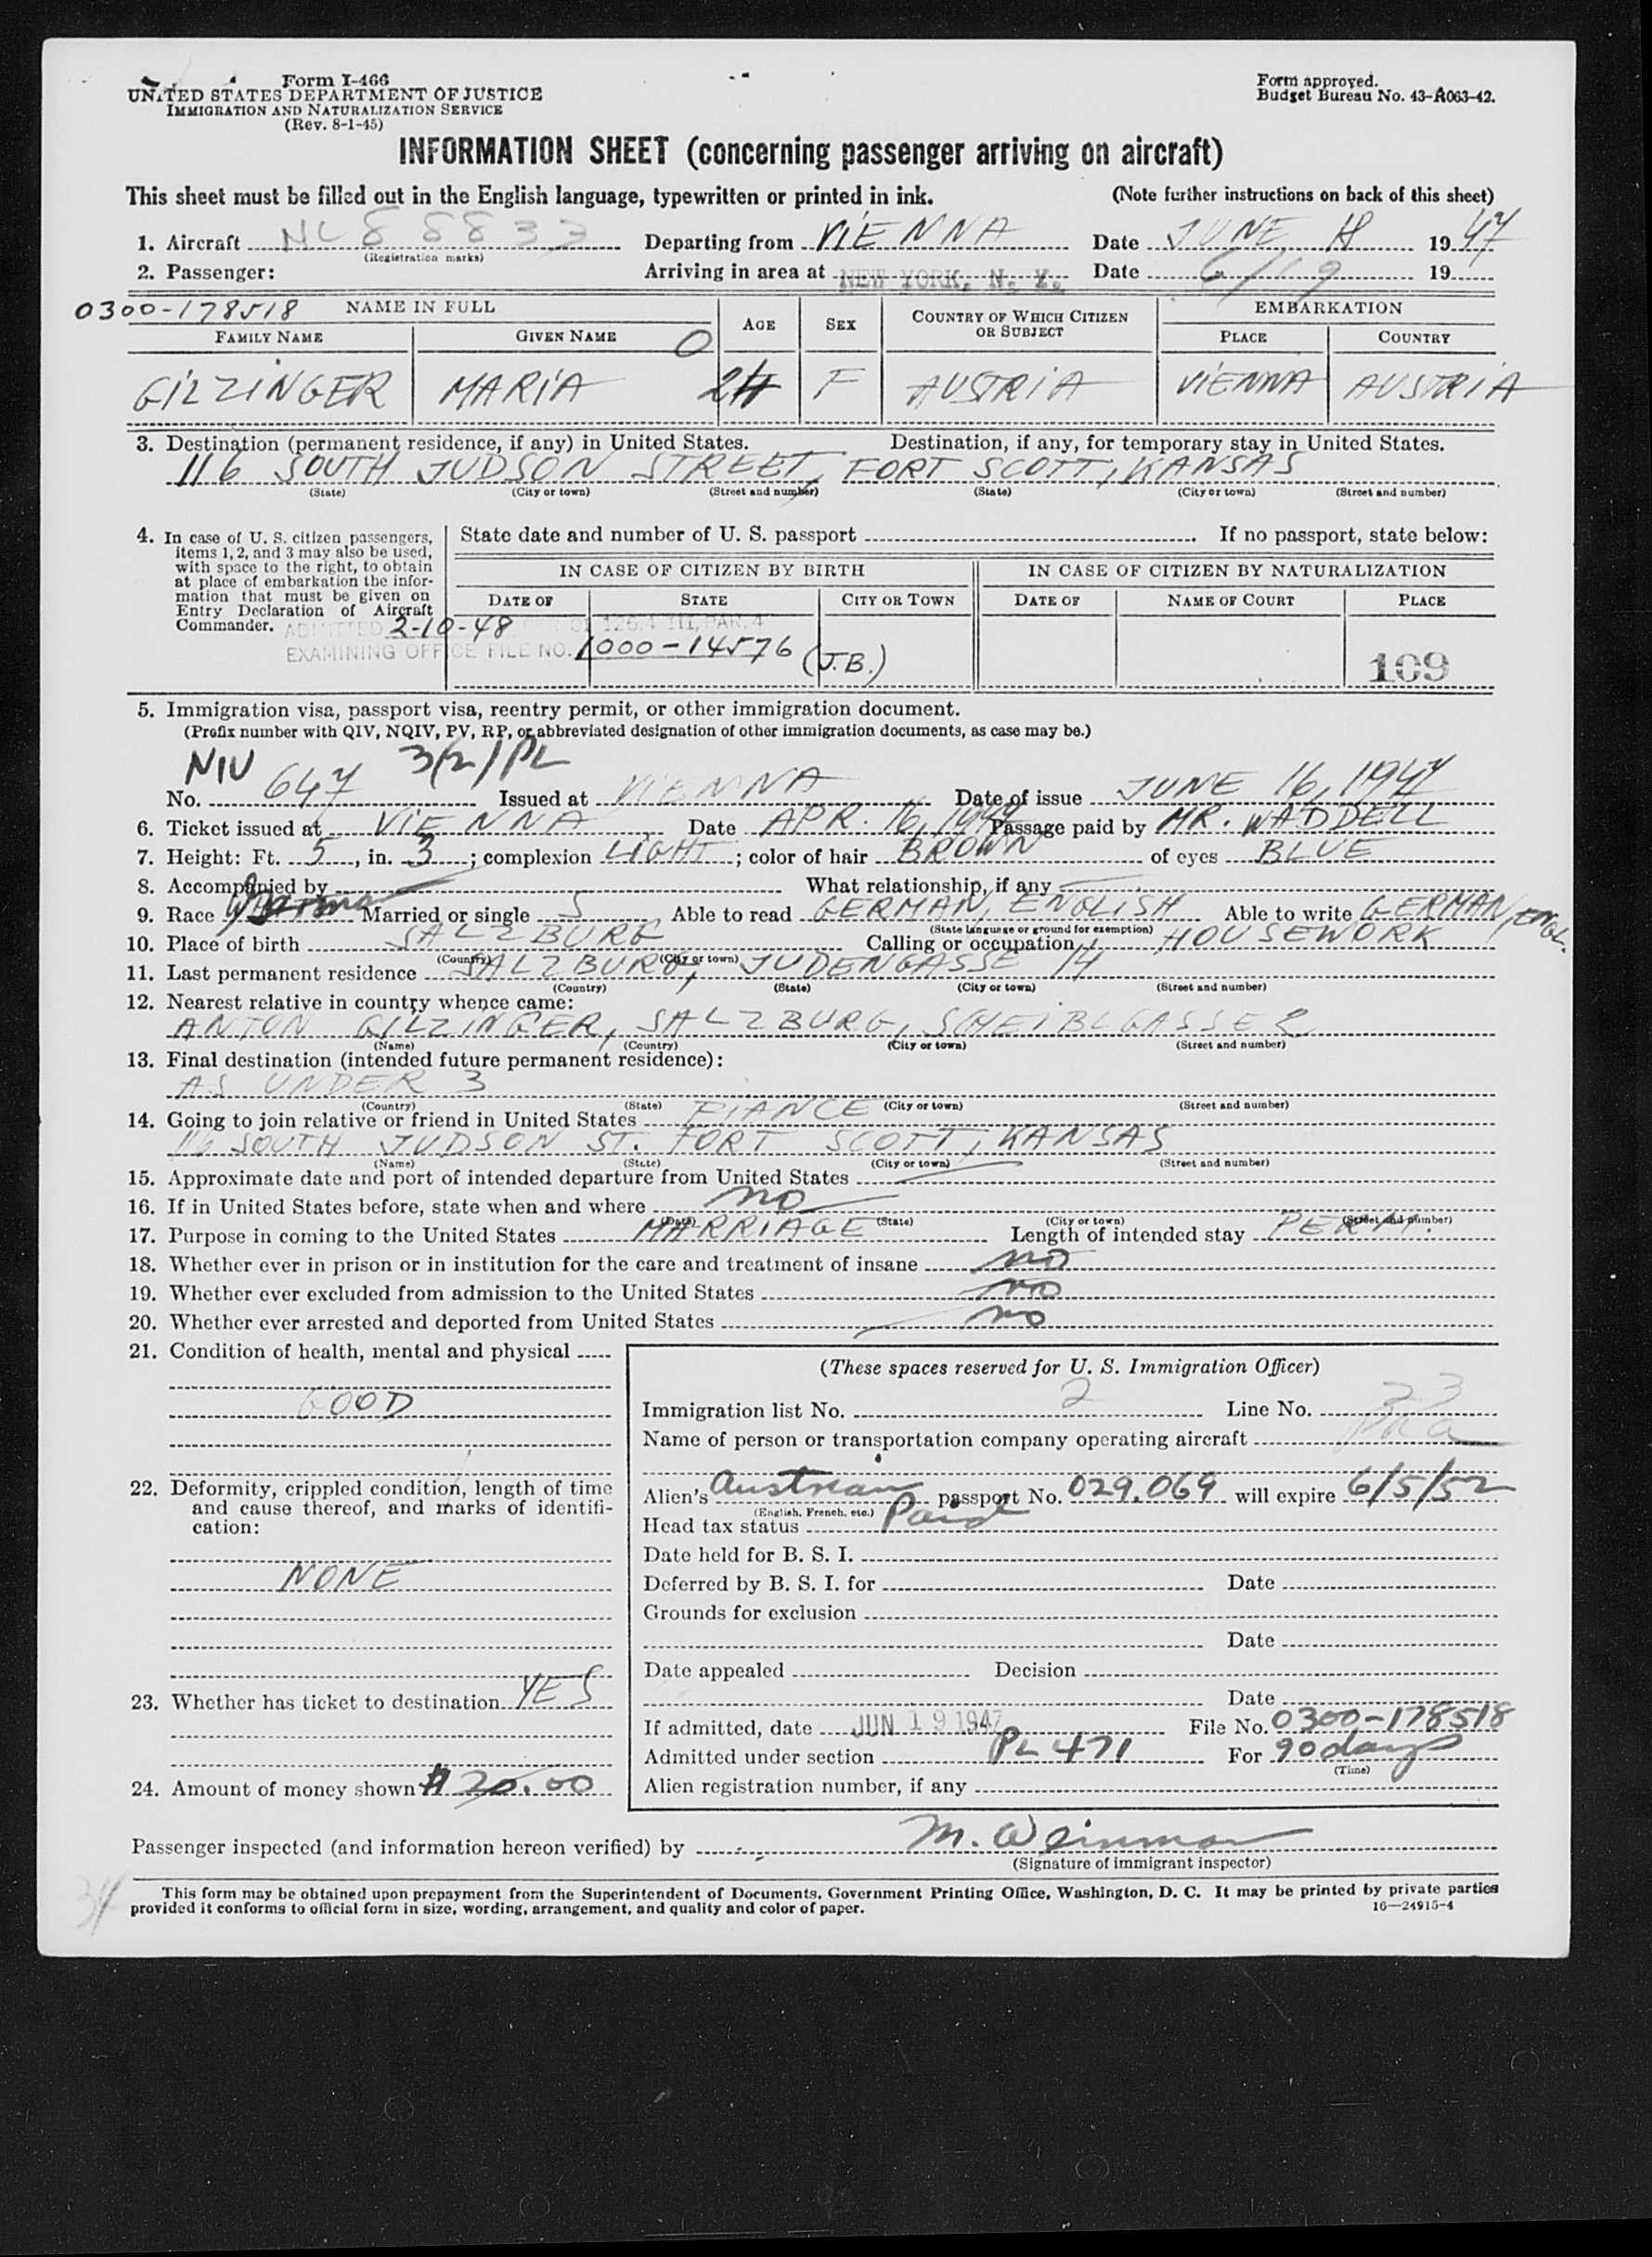 Form I-466
UNITED STATES DEPARTMENT OF JUSTICE
IMMIGRATION AND NATURALIZATION SERVICE
(Rev. 8-1-45)
Form approved.
Budget Bureau No. 43-R063-42.
INFORMATION SHEET (concerning passenger arriving on aircraft)
This sheet must be filled out in the English language, typewritten or printed in ink. (Note further instructions on back of this sheet)
1. Aircraft NC 88833 Departing from VIENNA Date JUNE 18 1947
(Registration marks)
2. Passenger: Arriving in area at NEW YORK, N. Y. Date 6/19 19
0300-178518 NAME IN FULL AGE SEX COUNTRY OF WHICH CITIZEN OR SUBJECT EMBARKATION
FAMILY NAME GIVEN NAME PLACE COUNTRY
GILZINGER MARIA O 24 F AUSTRIA VIENNA AUSTRIA
3. Destination (permanent residence, if any) in United States. Destination, if any, for temporary stay in United States.
116 SOUTH JUDSON STREET, FORT SCOTT, KANSAS
(State) (City or town) (Street and number) (State) (City or town) (Street and number)
4. In case of U. S. citizen passengers, items 1, 2, and 3 may also be used, with space to the right, to obtain at place of embarkation the information that must be given on Entry Declaration of Aircraft Commander.
State date and number of U. S. passport If no passport, state below:
IN CASE OF CITIZEN BY BIRTH IN CASE OF CITIZEN BY NATURALIZATION
DATE OF STATE CITY OR TOWN DATE OF NAME OF COURT PLACE
ADMITTED 2-10-48 126.4 III, PAR. 4
EXAMINING OFFICE FILE NO. 1000-14576 (J.B.)
109
5. Immigration visa, passport visa, reentry permit, or other immigration document.
(Prefix number with QIV, NQIV, PV, RP, or abbreviated designation of other immigration documents, as case may be.)
NIV 3(2)/PL
No. 647 Issued at VIENNA Date of issue JUNE 16, 1947
6. Ticket issued at VIENNA Date APR. 16, 1947 Passage paid by MR. WADDELL
7. Height: Ft. 5, in. 3; complexion LIGHT; color of hair BROWN of eyes BLUE
8. Accompanied by What relationship, if any
9. Race Married or single S Able to read GERMAN, ENGLISH Able to write GERMAN, ENGL.
(State language or ground for exemption)
10. Place of birth SALZBURG Calling or occupation HOUSEWORK
(Country) (City or town)
11. Last permanent residence SALZBURG, JUDENGASSE 14
(Country) (State) (City or town) (Street and number)
12. Nearest relative in country whence came:
ANTON GILZINGER, SALZBURG, SCHEIBLGASSE 2
(Name) (Country) (City or town) (Street and number)
13. Final destination (intended future permanent residence):
AS UNDER 3
(Country) (State) (City or town) (Street and number)
14. Going to join relative or friend in United States FIANCE
116 SOUTH JUDSON ST. FORT SCOTT, KANSAS
(Name) (State) (City or town) (Street and number)
15. Approximate date and port of intended departure from United States
16. If in United States before, state when and where no
(Date) (State) (City or town) (Street and number)
17. Purpose in coming to the United States MARRIAGE Length of intended stay PERM.
18. Whether ever in prison or in institution for the care and treatment of insane no
19. Whether ever excluded from admission to the United States no
20. Whether ever arrested and deported from United States no
21. Condition of health, mental and physical
GOOD
22. Deformity, crippled condition, length of time and cause thereof, and marks of identification:
NONE
23. Whether has ticket to destination YES
24. Amount of money shown $ 20.00
(These spaces reserved for U. S. Immigration Officer)
Immigration list No. 2 Line No. 23
Name of person or transportation company operating aircraft Paa
Alien's Austrian passport No. 029.069 will expire 6/5/52
(English, French, etc.)
Head tax status Paid
Date held for B. S. I.
Deferred by B. S. I. for Date
Grounds for exclusion
Date
Date appealed Decision
Date
If admitted, date JUN 19 1947 File No. 0300-178518
Admitted under section PL 471 For 90 days
(Time)
Alien registration number, if any
Passenger inspected (and information hereon verified) by M. Weinman
(Signature of immigrant inspector)
34
This form may be obtained upon prepayment from the Superintendent of Documents, Government Printing Office, Washington, D. C. It may be printed by private parties
provided it conforms to official form in size, wording, arrangement, and quality and color of paper. 16—24915-4